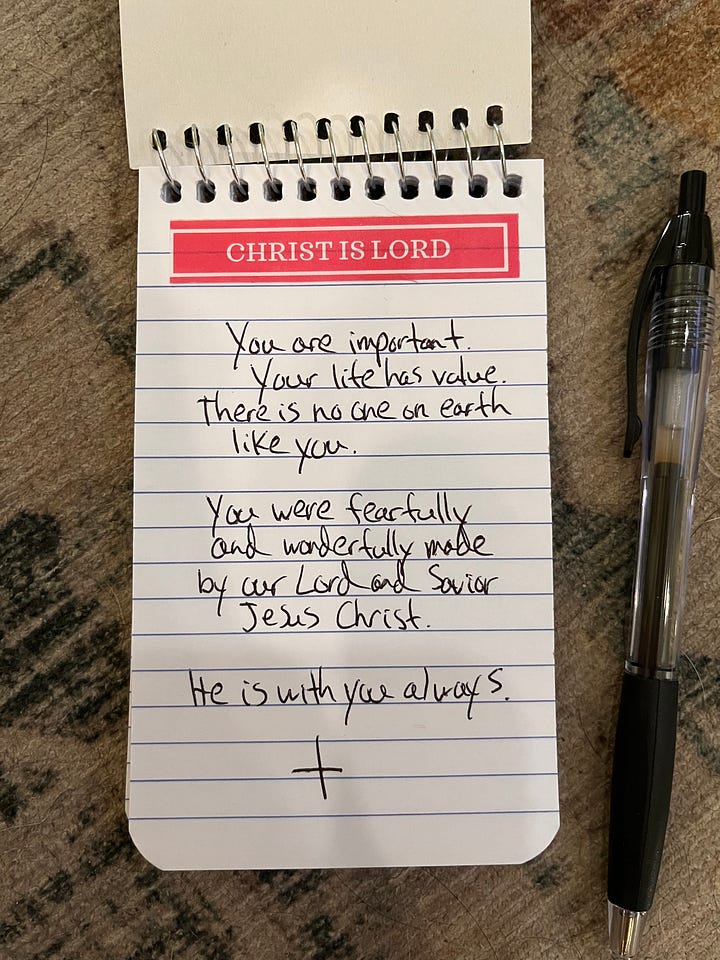 CHRIST IS LORD
You are important.
Your life has value.
There is no one on earth
like you.
You were fearfully
and wonderfully made
by our Lord and Savior
Jesus Christ.
He is with you always.